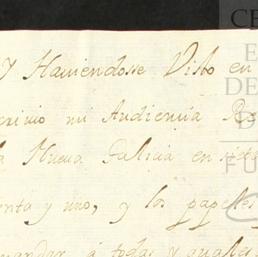 Y Haviendosse Visto en
mi Audiencia Re
Nueva Galicia en siete
enta y uno, y los papeles
mandar á todas y qualesq
CE
E
DE
DE
FU